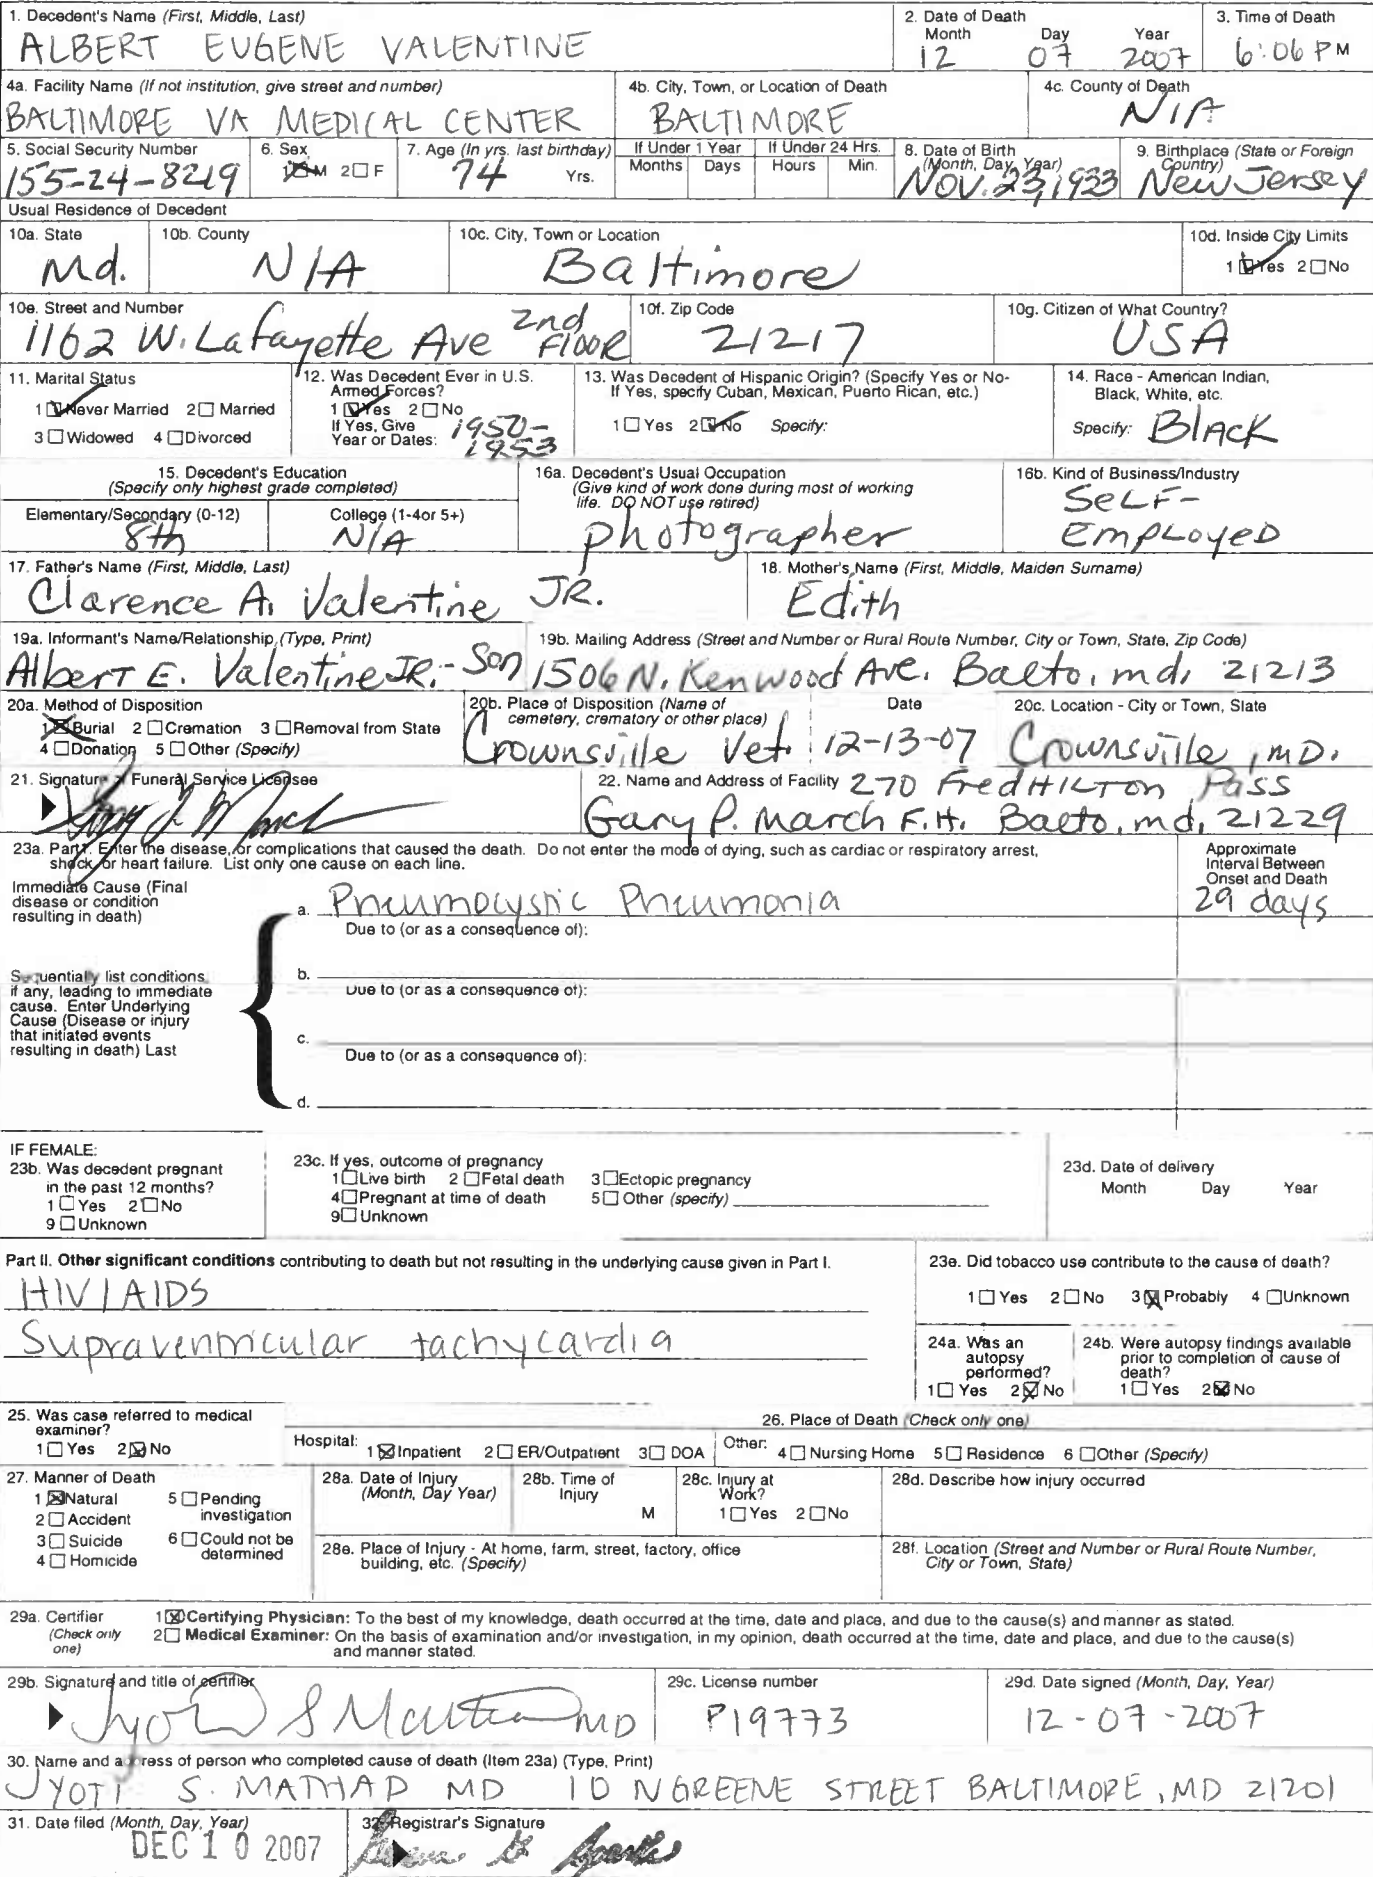 1. Decedent's Name (First, Middle, Last)
ALBERT EUGENE VALENTINE
2. Date of Death
Month Day Year
12 07 2007
3. Time of Death
6:06 PM
4a. Facility Name (If not institution, give street and number)
BALTIMORE VA MEDICAL CENTER
4b. City, Town, or Location of Death
BALTIMORE
4c. County of Death
N/A
5. Social Security Number
155-24-8219
6. Sex
1☒M 2☐F
7. Age (In yrs. last birthday)
74 Yrs.
If Under 1 Year
Months Days
If Under 24 Hrs.
Hours Min.
8. Date of Birth
(Month, Day, Year)
Nov. 23, 1933
9. Birthplace (State or Foreign
Country)
New Jersey
Usual Residence of Decedent
10a. State
Md.
10b. County
N/A
10c. City, Town or Location
Baltimore
10d. Inside City Limits
1☑Yes 2☐No
10e. Street and Number
1162 W. Lafayette Ave 2nd Floor
10f. Zip Code
21217
10g. Citizen of What Country?
USA
11. Marital Status
1☑Never Married 2☐Married
3☐Widowed 4☐Divorced
12. Was Decedent Ever in U.S.
Armed Forces?
1☑Yes 2☐No
If Yes, Give
Year or Dates: 1950-
1953
13. Was Decedent of Hispanic Origin? (Specify Yes or No-
If Yes, specify Cuban, Mexican, Puerto Rican, etc.)
1☐Yes 2☑No Specify:
14. Race - American Indian,
Black, White, etc.
Specify: Black
15. Decedent's Education
(Specify only highest grade completed)
Elementary/Secondary (0-12)
8th
College (1-4or 5+)
N/A
16a. Decedent's Usual Occupation
(Give kind of work done during most of working
life. DO NOT use retired)
photographer
16b. Kind of Business/Industry
SELF-
EMPLOYED
17. Father's Name (First, Middle, Last)
Clarence A. Valentine JR.
18. Mother's Name (First, Middle, Maiden Surname)
Edith
19a. Informant's Name/Relationship (Type, Print)
Albert E. Valentine JR. - Son
19b. Mailing Address (Street and Number or Rural Route Number, City or Town, State, Zip Code)
1506 N. Kenwood Ave. Balto, md, 21213
20a. Method of Disposition
1☒Burial 2☐Cremation 3☐Removal from State
4☐Donation 5☐Other (Specify)
20b. Place of Disposition (Name of
cemetery, crematory or other place)
Crownsville Vet.
Date
12-13-07
20c. Location - City or Town, State
Crownsville, MD.
21. Signature of Funeral Service Licensee
22. Name and Address of Facility 270 FredHilton Pass
Gary P. March F.H. Balto, md, 21229
23a. Part I. Enter the disease, or complications that caused the death. Do not enter the mode of dying, such as cardiac or respiratory arrest,
shock, or heart failure. List only one cause on each line.
Approximate
Interval Between
Onset and Death
29 days
Immediate Cause (Final
disease or condition
resulting in death)
a. Pneumocystic Pneumonia
Due to (or as a consequence of):
Sequentially list conditions,
if any, leading to immediate
cause. Enter Underlying
Cause (Disease or injury
that initiated events
resulting in death) Last
b.
Due to (or as a consequence of):
c.
Due to (or as a consequence of):
d.
IF FEMALE:
23b. Was decedent pregnant
in the past 12 months?
1☐Yes 2☐No
9☐Unknown
23c. If yes, outcome of pregnancy
1☐Live birth 2☐Fetal death 3☐Ectopic pregnancy
4☐Pregnant at time of death 5☐Other (specify)
9☐Unknown
23d. Date of delivery
Month Day Year
Part II. Other significant conditions contributing to death but not resulting in the underlying cause given in Part I.
HIV/AIDS
Supraventricular tachycardia
23e. Did tobacco use contribute to the cause of death?
1☐Yes 2☐No 3☒Probably 4☐Unknown
24a. Was an
autopsy
performed?
1☐Yes 2☒No
24b. Were autopsy findings available
prior to completion of cause of
death?
1☐Yes 2☒No
25. Was case referred to medical
examiner?
1☐Yes 2☒No
26. Place of Death (Check only one)
Hospital: 1☒Inpatient 2☐ER/Outpatient 3☐DOA Other: 4☐Nursing Home 5☐Residence 6☐Other (Specify)
27. Manner of Death
1☒Natural
2☐Accident
3☐Suicide
4☐Homicide
5☐Pending
investigation
6☐Could not be
determined
28a. Date of Injury
(Month, Day Year)
28b. Time of
Injury
M
28c. Injury at
Work?
1☐Yes 2☐No
28d. Describe how injury occurred
28e. Place of Injury - At home, farm, street, factory, office
building, etc. (Specify)
28f. Location (Street and Number or Rural Route Number,
City or Town, State)
29a. Certifier
(Check only
one)
1☒Certifying Physician: To the best of my knowledge, death occurred at the time, date and place, and due to the cause(s) and manner as stated.
2☐Medical Examiner: On the basis of examination and/or investigation, in my opinion, death occurred at the time, date and place, and due to the cause(s)
and manner stated.
29b. Signature and title of certifier
MD
29c. License number
P19773
29d. Date signed (Month, Day, Year)
12-07-2007
30. Name and address of person who completed cause of death (Item 23a) (Type, Print)
JYOTI S. MATHAD MD 10 N GREENE STREET BALTIMORE, MD 21201
31. Date filed (Month, Day, Year)
DEC 10 2007
32. Registrar's Signature